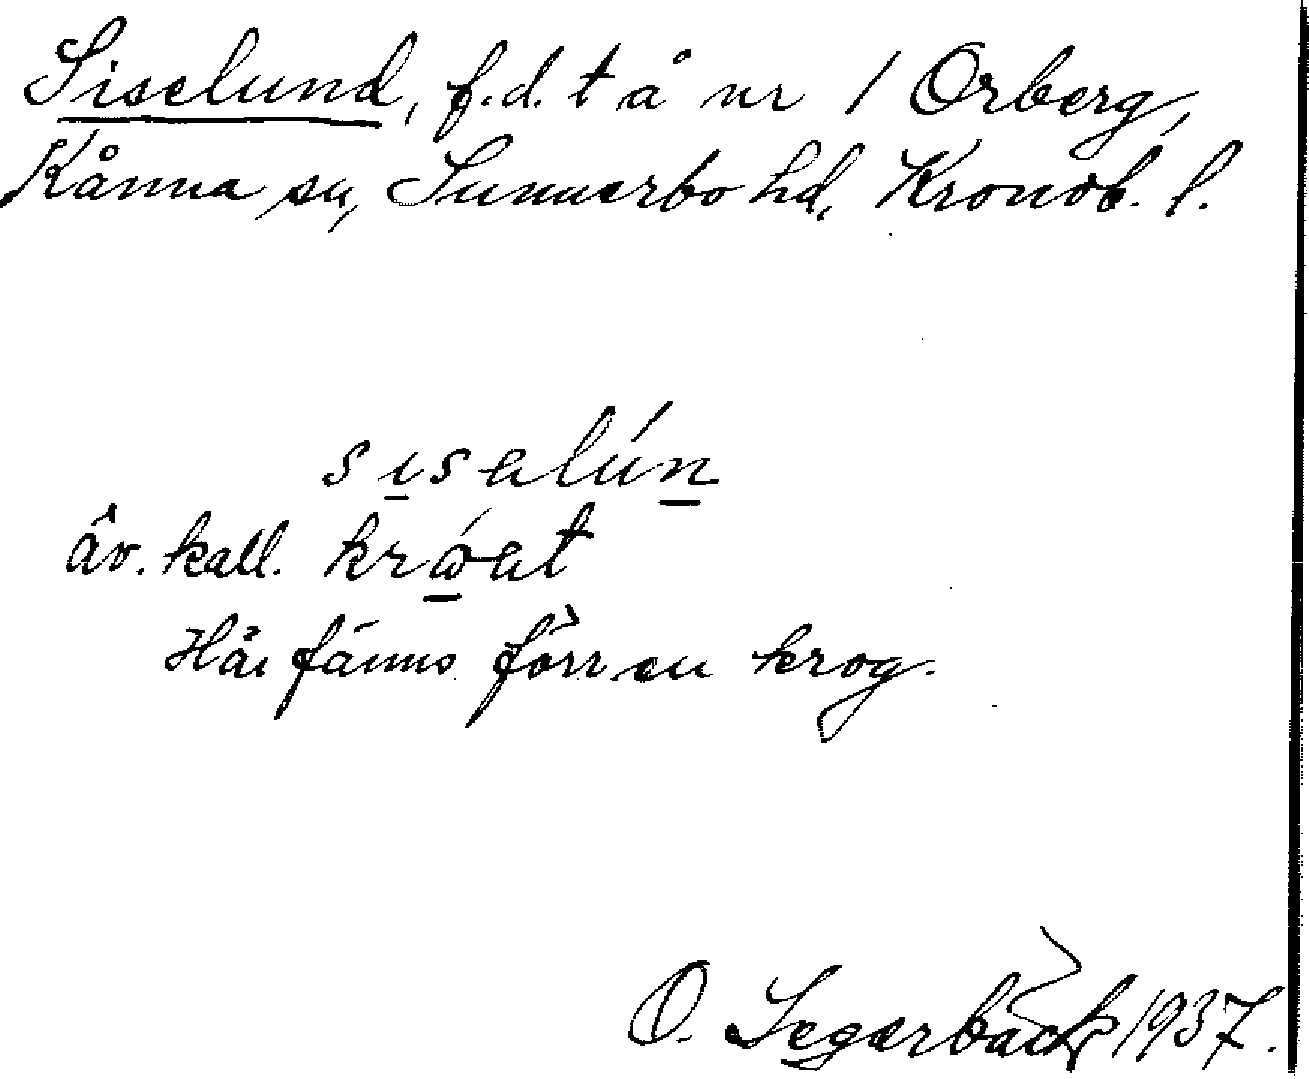 Siselund, f.d. t å nr 1 Orberg,
Kånna sn, Sunnerbo hd, Kronob. l.
sısalún
äv. kall. krǿat
Här fanns förr en krog.
O. Segerbäck 1937.